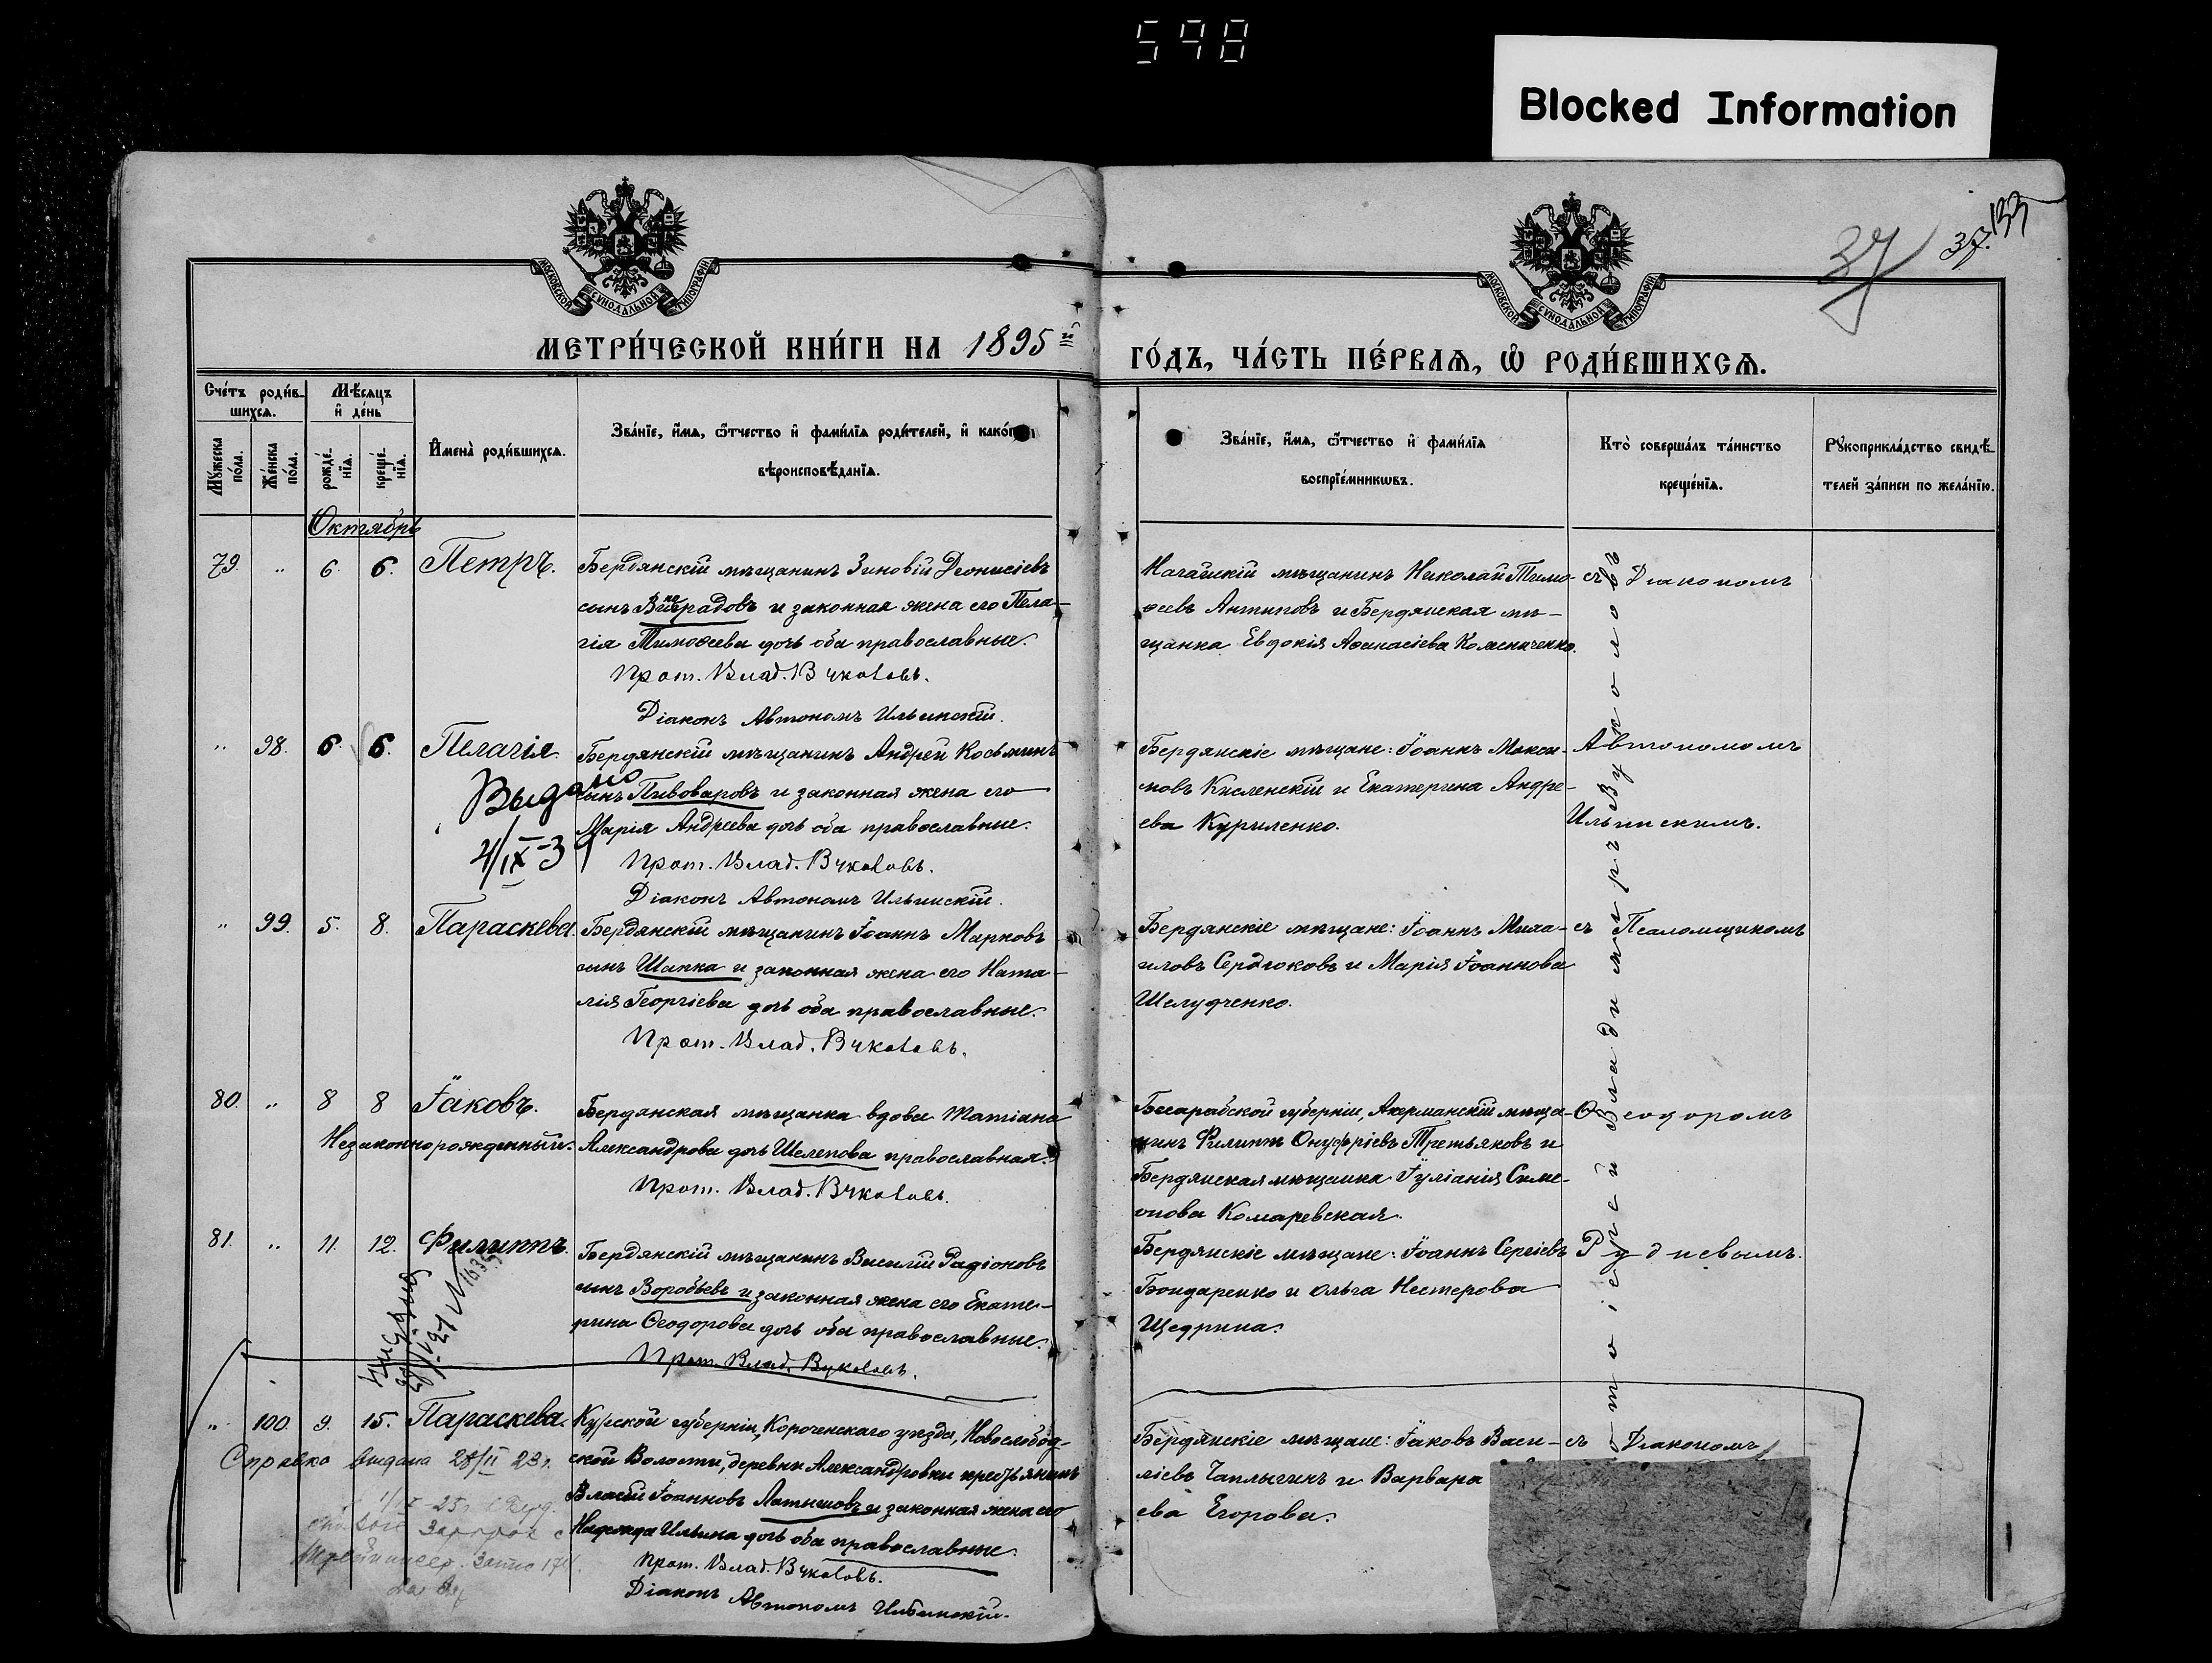 598
Blocked Information
37
37. 133
МОСКОВСКОЙ СУНОДАЛЬНОЙ ТИПОГРАФІИ
МОСКОВСКОЙ СУНОДАЛЬНОЙ ТИПОГРАФІИ
МЕТРИ́ЧЕСКОЙ КНИ́ГИ НА 1895й
ГО́ДЪ, ЧА́СТЬ ПЕ́РВАѦ, Ѽ РОДИ́ВШИХСѦ.
Сче́тъ роди́в-
шихсѧ.
Мѣ́сѧцъ
и де́нь
Мꙋ́жеска по́ла.
Же́нска по́ла.
рожде́-нїѧ.
креще́-нїѧ.
И҆мена̀ роди́вшихсѧ.
Зва́нїе, и҆́мѧ, ѻ҆́тчество и҆ фами́лїѧ роди́телей, и҆ како́гѡ
вѣроисповѣ́данїѧ.
Зва́нїе, и҆́мѧ, ѻ҆́тчество и҆ фами́лїѧ
воспрїе́мникѡвъ.
Кто̀ соверша́лъ та́инство
креще́нїѧ.
Рꙋкоприкла́дство свидѣ́-
телей за́писи по жела́нїю.
Октябрь
79. " 6. 6. Петръ.
Бердянскій мѣщанинъ Зиновій Діонисіевъ
сынъ Виноградовъ и законная жена его Пела-
гія Тимоѳеева дочь оба православные.
Прот. Влад. Вуколовъ.
Діаконъ Автономъ Ильинскій.
Ногайскій мѣщанинъ Николай Тимо-
ѳеевъ Антиповъ и Бердянская мѣ-
щанка Евдокія Аѳанасіева
съ Діакономъ
" 98. 6. 6. Пелагія.
Выдано
4/IX-3
Бердянскій мѣщанинъ Андрей Косьминъ
сынъ Пивоваровъ и законная жена его
Марія Андреева дочь оба православные.
Прот. Влад. Вуколовъ.
Діаконъ Автономъ Ильинскій.
Бердянскіе мѣщане: Іоаннъ Макси-
мовъ Кисленскій и Екатерина Андре-
ева Куриленко.
Автономомъ
Ильинскимъ.
" 99. 5. 8. Параскева.
Бердянскій мѣщанинъ Іоаннъ Марковъ
сынъ Шапка и законная жена его Ната-
лія Георгіева дочь оба православные.
Прот. Влад. Вуколовъ.
Бердянскіе мѣщане: Іоаннъ Миха-
иловъ Сердюковъ и Марія Іоаннова
Шелудченко.
съ Псаломщикомъ
80. " 8 8 Іаковъ.
Незаконнорожденный.
Бердянская мѣщанка вдова Татіана
Александрова дочь Шелепова православная.
Прот. Влад. Вуколовъ.
Бесарабской губерніи, Акерманскій мѣща-
нинъ Филиппъ Онуфріевъ Третьяковъ и
Бердянская мѣщанка Іуліанія Симе-
онова Комаревская.
Ѳеодоромъ
81. " 11. 12. Филиппъ.
Бердянскій мѣщанинъ Василій Радіоновъ
сынъ Воробьевъ и законная жена его Екате-
рина Ѳеодорова дочь оба православные.
Прот. Влад. Вуколовъ.
Бердянскіе мѣщане: Іоаннъ Сергіевъ
Бондаренко и Ольга Нестерова
Щедрина.
Рудневымъ.
" 100. 9. 15. Параскева.
Справка выдана 28/II 23г.
Курской губерніи, Короченскаго уѣзда, Новослобод-
ской Волости, деревни Александровки крестьянинъ
Власій Іоанновъ Латышовъ и законная жена его
Надежда Ильина дочь оба православные.
Прот. Влад. Вуколовъ.
Діаконъ Автономъ Ильинскій.
Бердянскіе мѣщане: Іаковъ Васи-
ліевъ Чаплыгинъ и Варвара
ева Егорова.
съ Діакономъ
отоіерей Владиміръ Вуколовъ